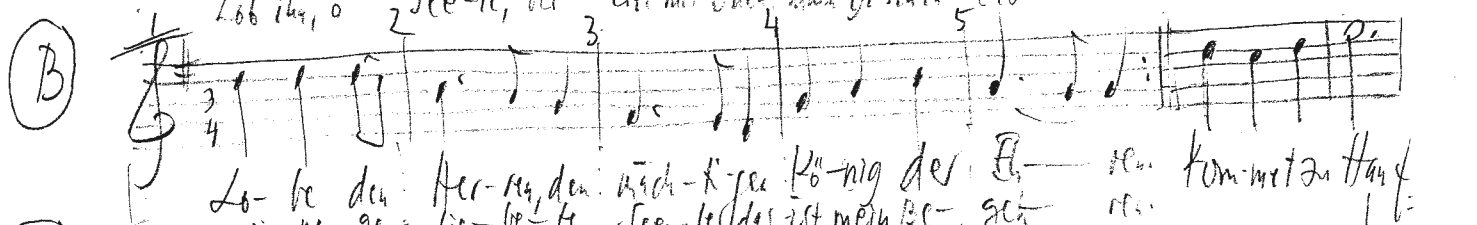 Lob ihn, o See-le,
1 2 3 4 5
B
3
4
Lo-be den Her-ren, den mäch-ti-gen Kö-nig der Eh— ren. Kom-met zu Hauf
lie-be-te See-le, das ist mein Be-geh— ren.